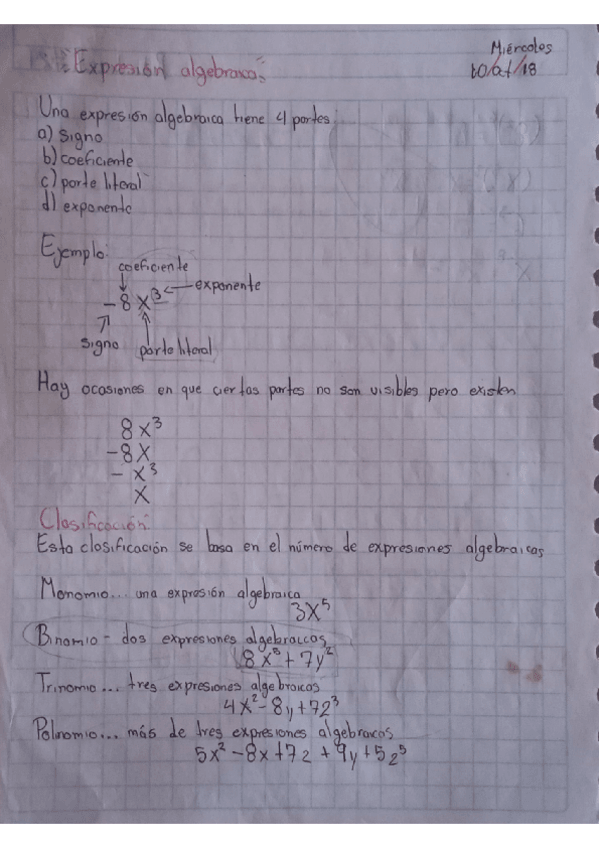 Miércoles
Expresión algebraica:
Una expresión algebraica tiene 4 partes:
a) Signo
b) coeficiente
c) parte literal
d) exponente
Ejemplo:
coeficiente
-8x³ exponente
signo parte literal
Hay ocasiones en que ciertas partes no son visibles pero existen
8x³
-8x
-x³
x
Clasificación
Esta clasificación se basa en el número de expresiones algebraicas
Monomio... una expresión algebraica
3x⁵
Binomio - dos expresiones algebraicas
8x⁵+7y²
Trinomio... tres expresiones algebraicas
4x²-8y+7z³
Polinomio... más de tres expresiones algebraicas
5x²-8x+7z+9y+5z⁵